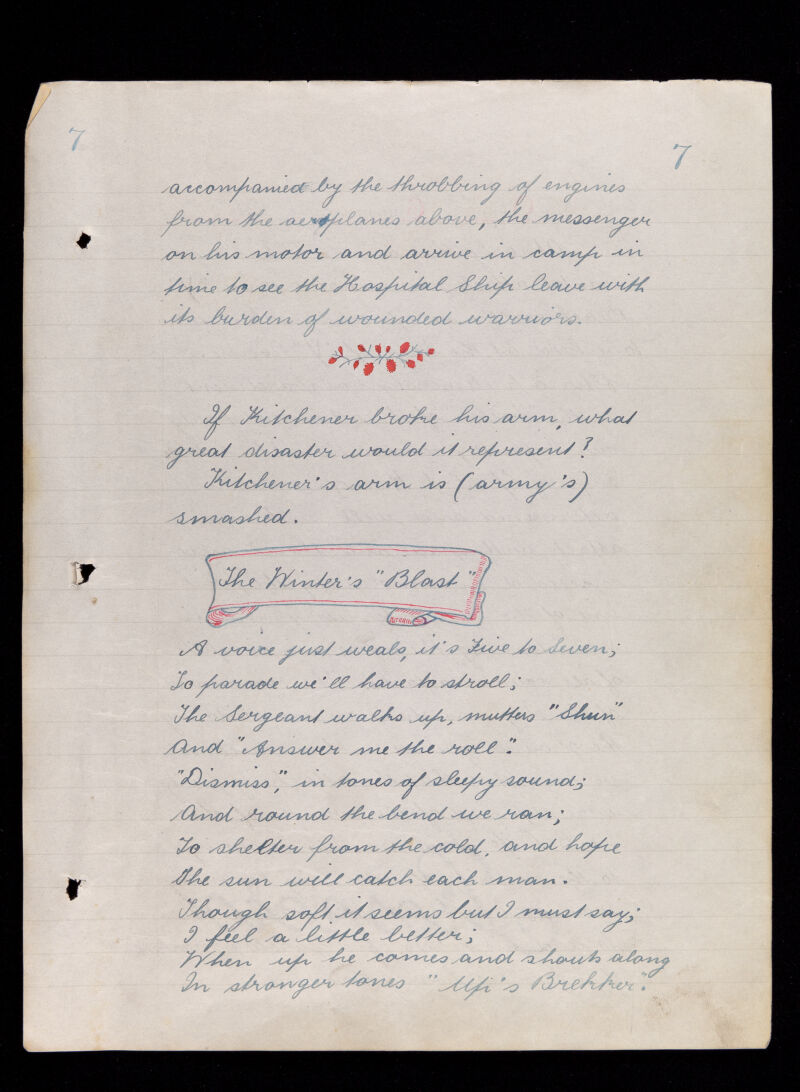 7
7
accompanied by the throbbing of engines
from the aeroplanes above, the messenger
on his motor and arrive in camp in
time to see the Hospital Ship leave with
its burden of wounded warriors.
If Kitchener broke his arm, what
great disaster would it represent?
Kitchener's arm is (army's)
smashed.
The Winter's "Blast"
A voice just weals, it's Five to Seven;
To parade we'll have to stroll;
The Sergeant walks up, mutters "Shun"
And "Answer me the roll".
"Dismiss", in tones of sleepy sound;
And round the bend we ran;
To shelter from the cold, and hope
The sun will catch each man.
Though soft it seems but I must say;
I feel a little better;
When up he comes and shouts along
In stronger tones "Mfi's Brekker".